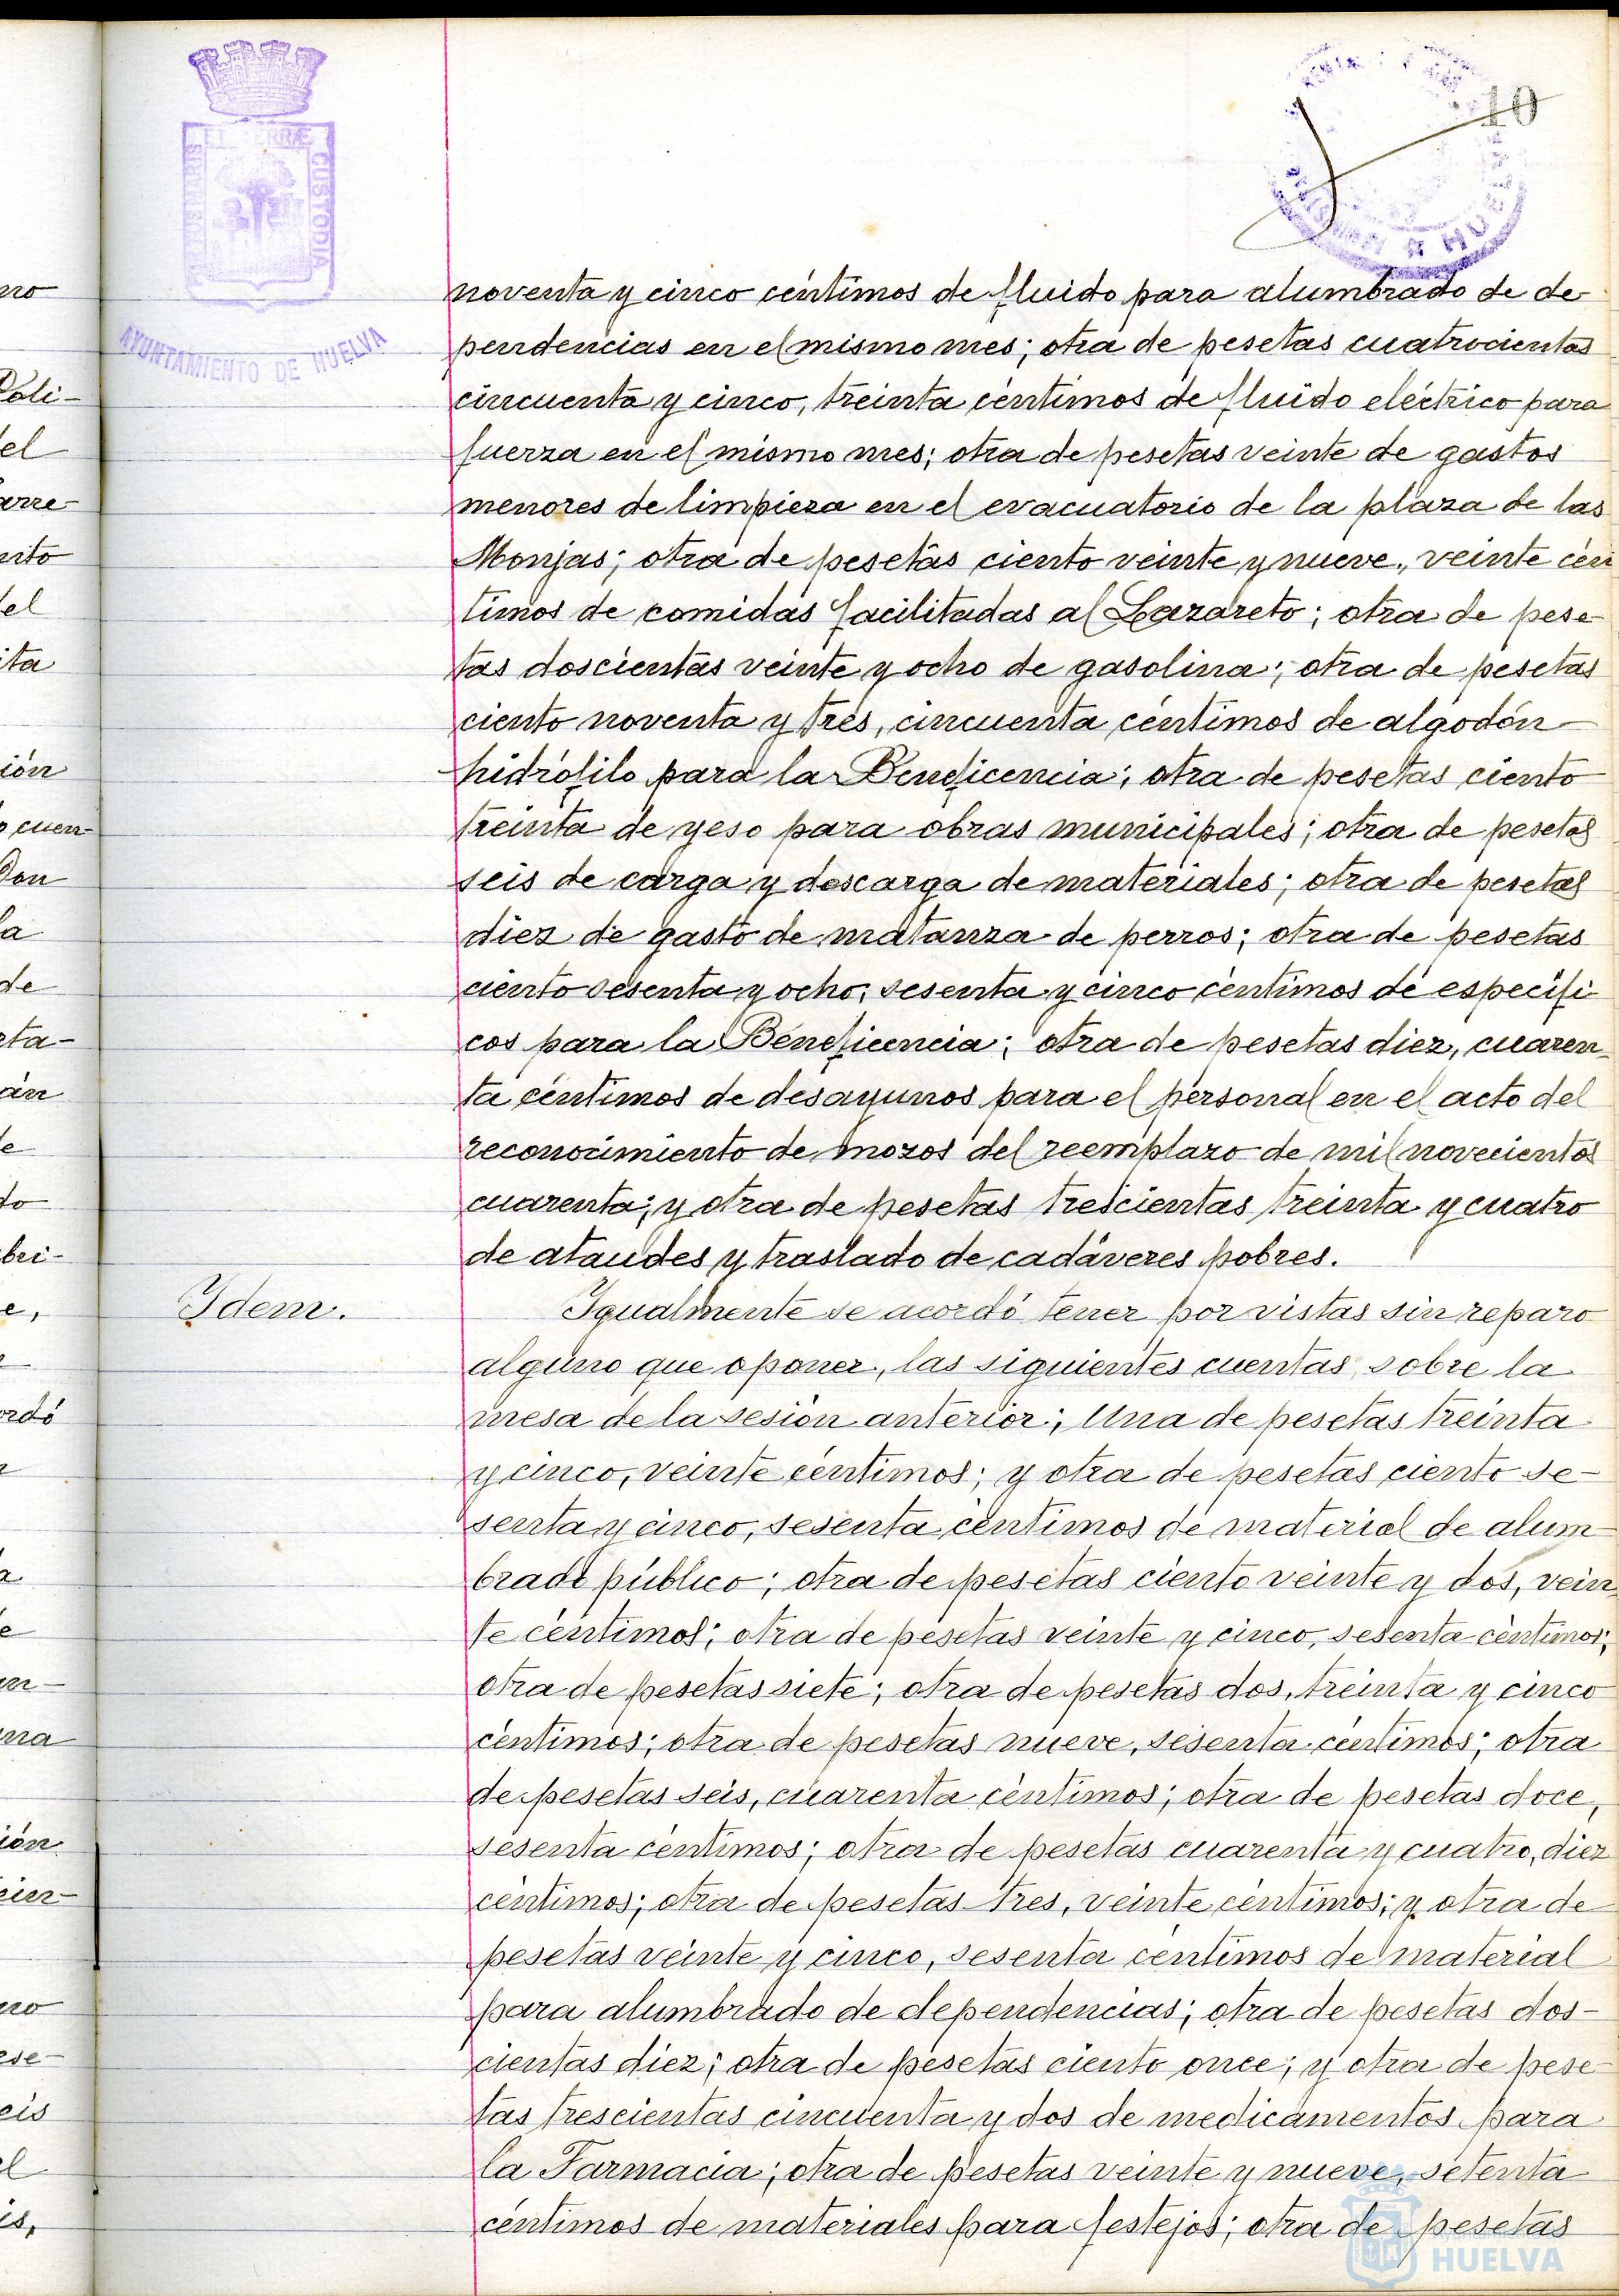 10
PORTUS MARIS ET TERRAE CUSTODIA
AYUNTAMIENTO DE HUELVA
HUELVA
noventa y cinco céntimos de fluido para alumbrado de de-
pendencias en el mismo mes; otra de pesetas cuatrocientas
cincuenta y cinco, treinta céntimos de fluido eléctrico para
fuerza en el mismo mes; otra de pesetas veinte de gastos
menores de limpieza en el evacuatorio de la plaza de las
Monjas; otra de pesetas ciento veinte y nueve, veinte cén
timos de comidas facilitadas al Lazareto; otra de pese-
tas doscientas veinte y ocho de gasolina; otra de pesetas
ciento noventa y tres, cincuenta céntimos de algodón
hidrófilo para la Beneficencia; otra de pesetas ciento
treinta de yeso para obras municipales; otra de pesetas
seis de carga y descarga de materiales; otra de pesetas
diez de gasto de matanza de perros; otra de pesetas
ciento sesenta y ocho, sesenta y cinco céntimos de específi-
cos para la Beneficencia; otra de pesetas diez, cuaren-
ta céntimos de desayunos para el personal en el acto del
reconocimiento de mozos del reemplazo de mil novecientos
cuarenta; y otra de pesetas trescientas treinta y cuatro
de ataudes y traslado de cadáveres pobres.
Idem.
Igualmente se acordó tener por vistas sin reparo
alguno que oponer, las siguientes cuentas sobre la
mesa de la sesión anterior: Una de pesetas treinta
y cinco, veinte céntimos; y otra de pesetas ciento se-
senta y cinco, sesenta céntimos de material de alum-
brado público; otra de pesetas ciento veinte y dos, vein-
te céntimos; otra de pesetas veinte y cinco, sesenta céntimos;
otra de pesetas siete; otra de pesetas dos, treinta y cinco
céntimos; otra de pesetas nueve, sesenta céntimos; otra
de pesetas seis, cuarenta céntimos; otra de pesetas doce,
sesenta céntimos; otra de pesetas cuarenta y cuatro, diez
céntimos; otra de pesetas tres, veinte céntimos; y otra de
pesetas veinte y cinco, sesenta céntimos de material
para alumbrado de dependencias; otra de pesetas dos-
cientas diez; otra de pesetas ciento once; y otra de pese-
tas trescientas cincuenta y dos de medicamentos para
la Farmacia; otra de pesetas veinte y nueve, setenta
céntimos de materiales para festejos; otra de pesetas
HUELVA